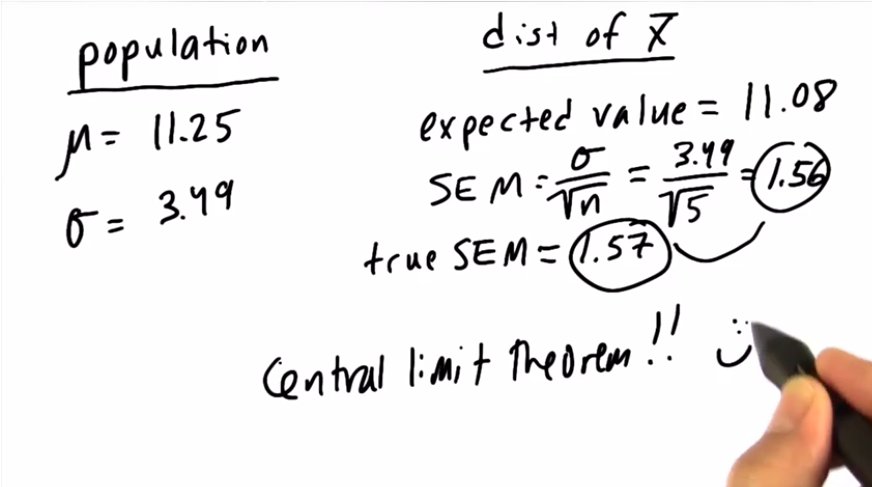 population
μ = 11.25
σ = 3.49
dist of x̄
expected value = 11.08
SEM = σ/√n = 3.49/√5 = 1.56
true SEM = 1.57
Central limit Theorem!!